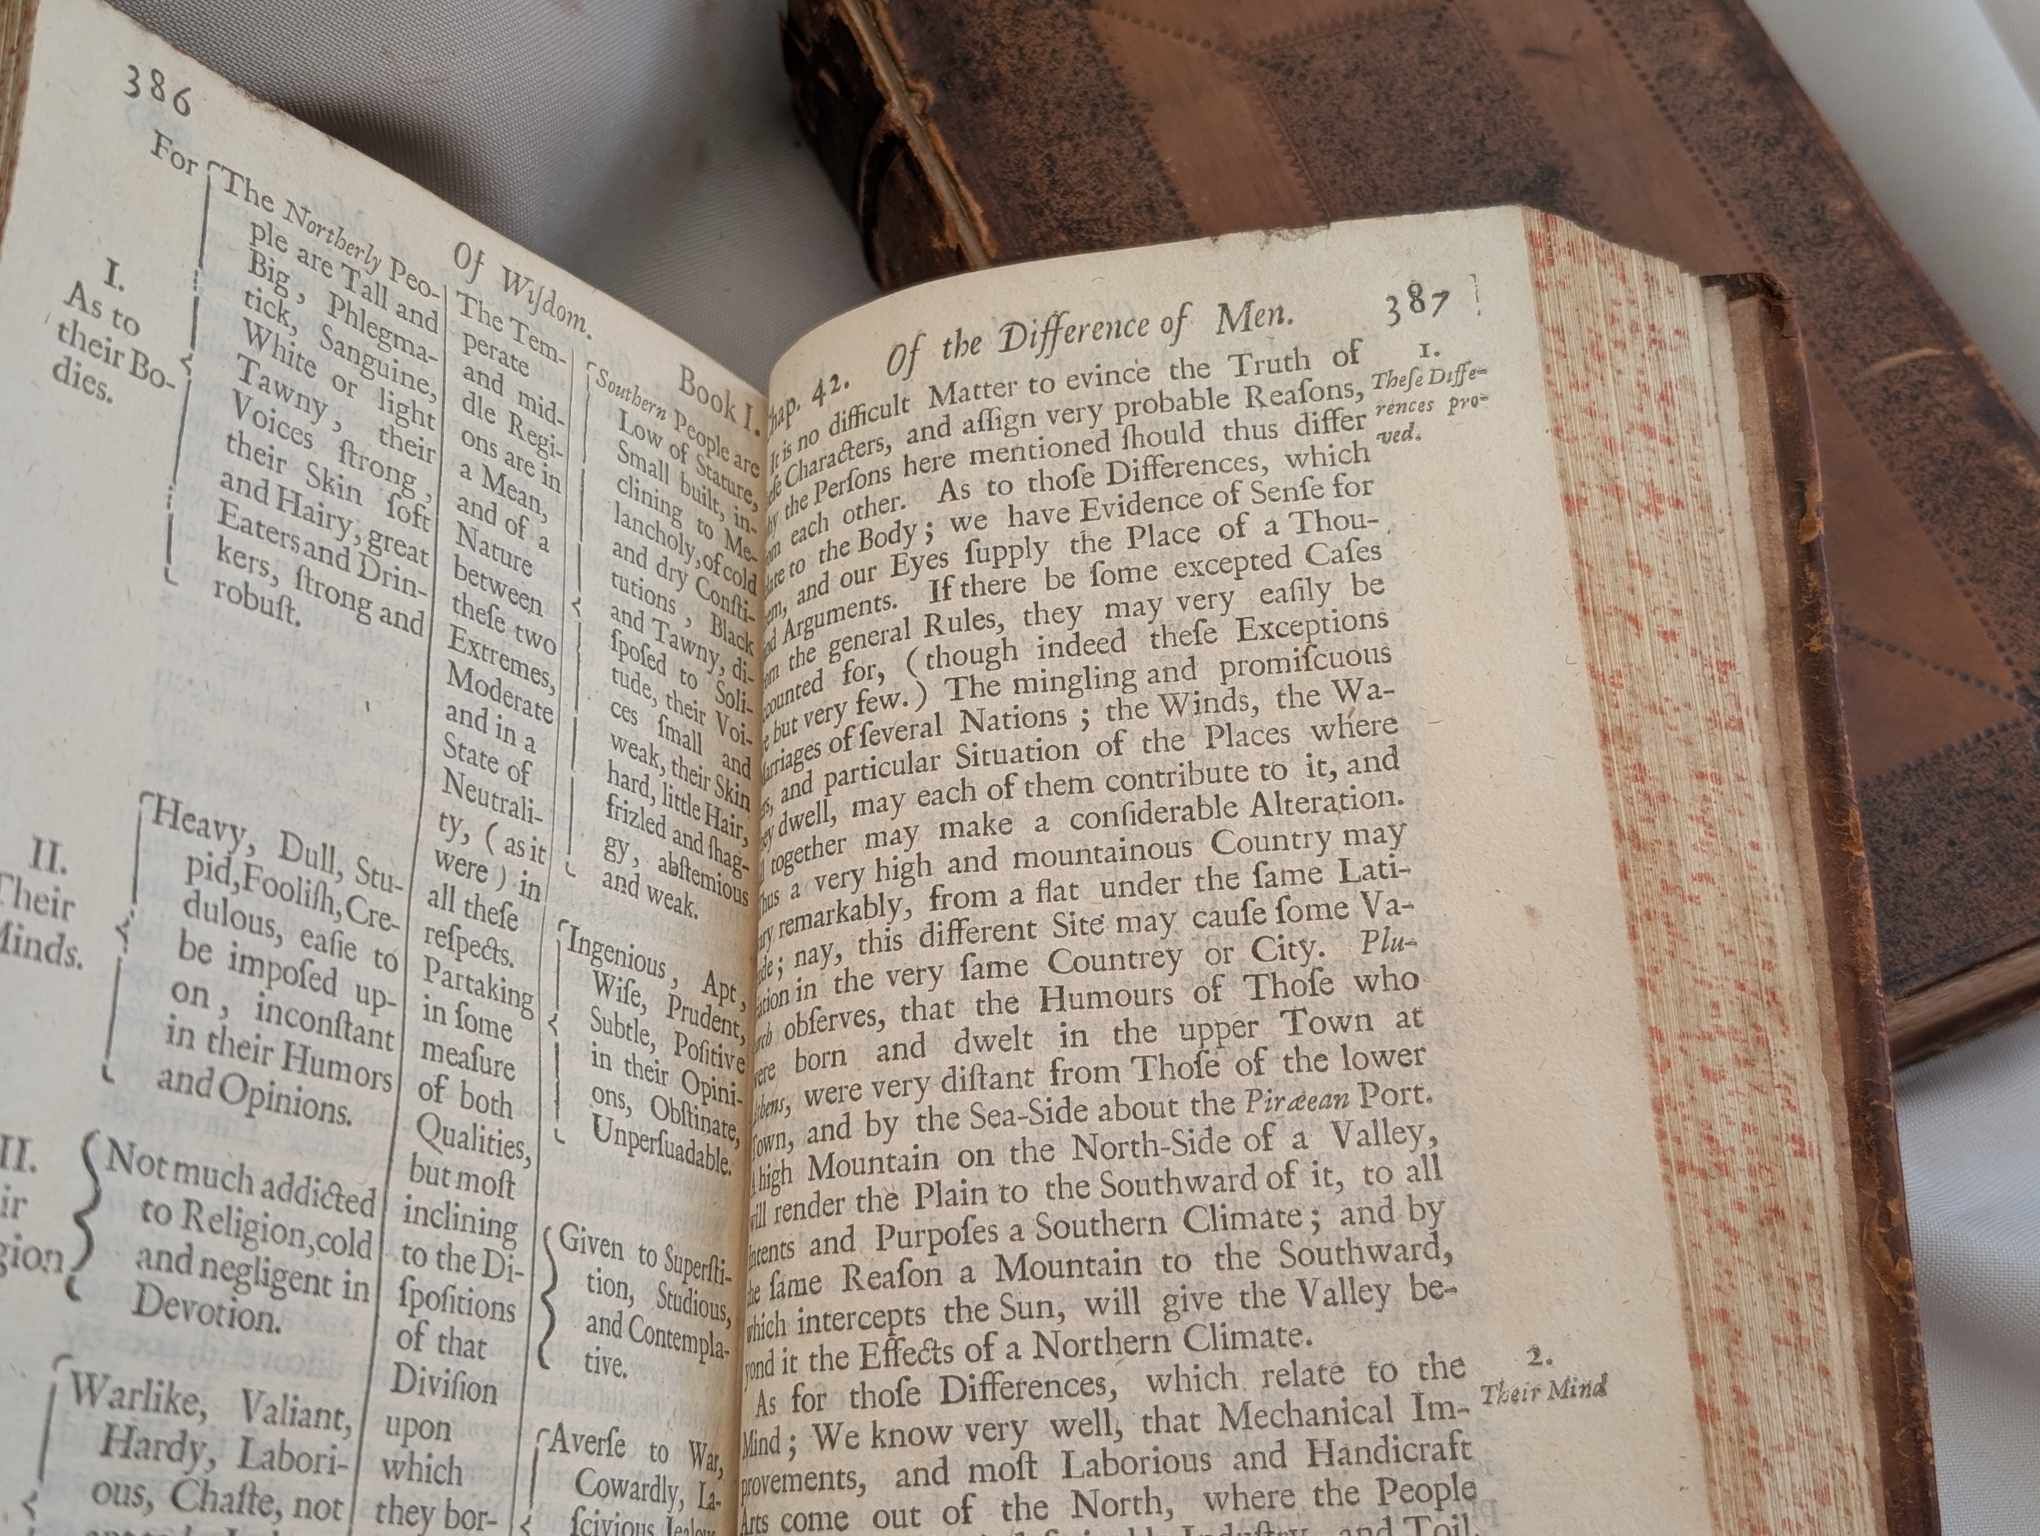 386
Of Wiſdom.
Book I.
For
I.
As to
their Bo-
dies.
The Northerly Peo-
ple are Tall and
Big, Phlegma-
tick, Sanguine,
White or light
Tawny, their
Voices ſtrong,
their Skin ſoft
and Hairy, great
Eaters and Drin-
kers, ſtrong and
robuſt.
The Tem-
perate
and mid-
dle Regi-
ons are in
a Mean,
and of a
Nature
between
theſe two
Extremes,
Moderate
and in a
State of
Neutrali-
ty, (as it
were) in
all theſe
reſpects.
Partaking
in ſome
meaſure
of both
Qualities,
but moſt
inclining
to the Di-
ſpoſitions
of that
Diviſion
upon
which
they bor-
Southern People are
Low of Stature,
Small built, in-
clining to Me-
lancholy, of cold
and dry Conſti-
tutions, Black
and Tawny, di-
ſpoſed to Soli-
tude, their Voi-
ces ſmall and
weak, their Skin
hard, little Hair,
frizled and ſhag-
gy, abſtemious
and weak.
II.
Their
Minds.
Heavy, Dull, Stu-
pid, Fooliſh, Cre-
dulous, eaſie to
be impoſed up-
on, inconſtant
in their Humors
and Opinions.
Ingenious, Apt,
Wiſe, Prudent,
Subtle, Poſitive
in their Opini-
ons, Obſtinate,
Unperſuadable.
II.
ir
gion
Not much addicted
to Religion, cold
and negligent in
Devotion.
Given to Superſti-
tion, Studious,
and Contempla-
tive.
Warlike, Valiant,
Hardy, Labori-
ous, Chaſte, not
Averſe to War,
Cowardly, La-
ſcivious
hap. 42. Of the Difference of Men. 387
It is no difficult Matter to evince the Truth of
eſe Characters, and aſſign very probable Reaſons,
by the Perſons here mentioned ſhould thus differ
om each other. As to thoſe Differences, which
late to the Body; we have Evidence of Senſe for
em, and our Eyes ſupply the Place of a Thou-
nd Arguments. If there be ſome excepted Caſes
om the general Rules, they may very eaſily be
counted for, (though indeed theſe Exceptions
e but very few.) The mingling and promiſcuous
arriages of ſeveral Nations; the Winds, the Wa-
rs, and particular Situation of the Places where
ey dwell, may each of them contribute to it, and
l together may make a conſiderable Alteration.
hus a very high and mountainous Country may
ary remarkably, from a flat under the ſame Lati-
de; nay, this different Site may cauſe ſome Va-
ation in the very ſame Countrey or City. Plu-
arch obſerves, that the Humours of Thoſe who
ere born and dwelt in the upper Town at
thens, were very diſtant from Thoſe of the lower
own, and by the Sea-Side about the Piræean Port.
high Mountain on the North-Side of a Valley,
will render the Plain to the Southward of it, to all
ntents and Purpoſes a Southern Climate; and by
he ſame Reaſon a Mountain to the Southward,
which intercepts the Sun, will give the Valley be-
yond it the Effects of a Northern Climate.
As for thoſe Differences, which relate to the
Mind; We know very well, that Mechanical Im-
provements, and moſt Laborious and Handicraft
Arts come out of the North, where the People
and Toil.
1.
Theſe Diffe-
rences pro-
ved.
2.
Their Mind